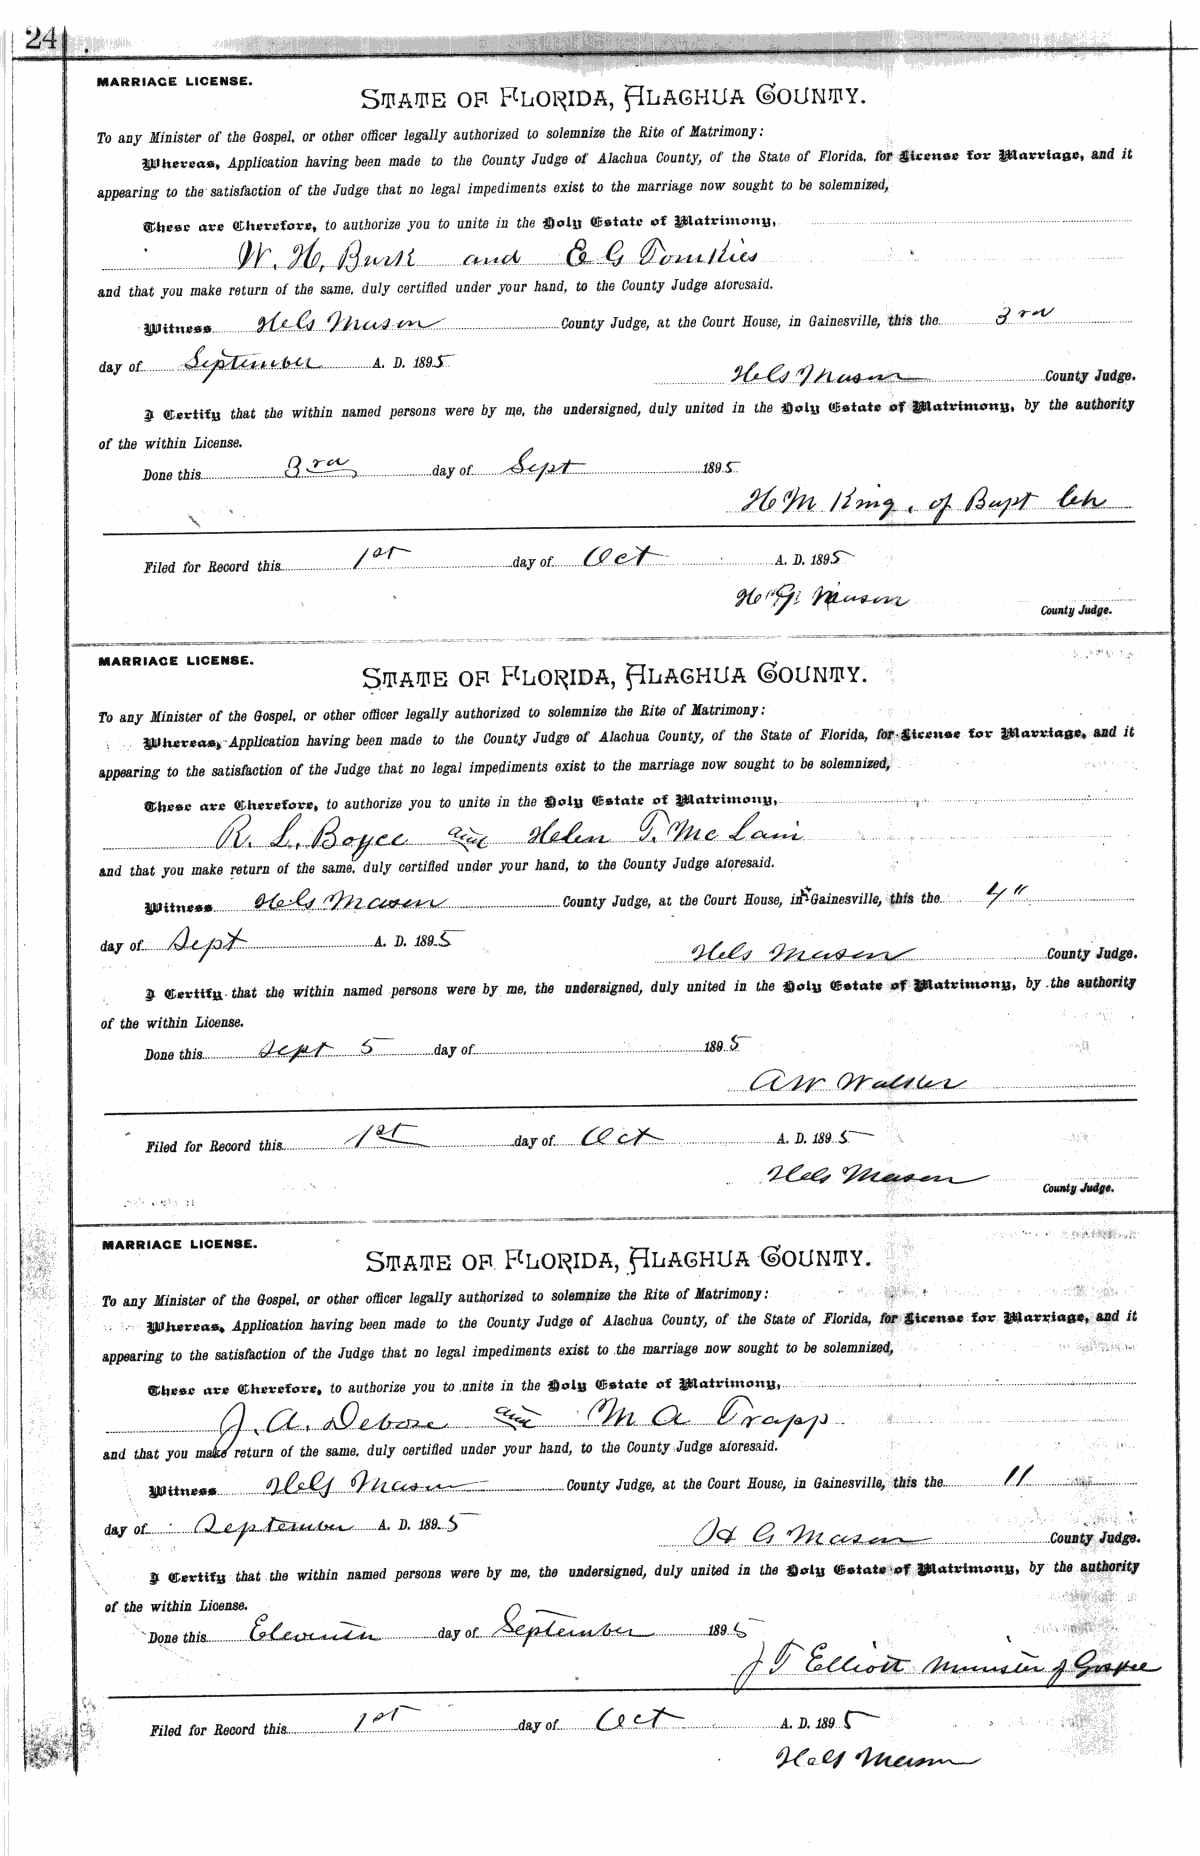 24
MARRIAGE LICENSE.
STATE OF FLORIDA, ALACHUA COUNTY.
To any Minister of the Gospel, or other officer legally authorized to solemnize the Rite of Matrimony:
Whereas, Application having been made to the County Judge of Alachua County, of the State of Florida, for License for Marriage, and it
appearing to the satisfaction of the Judge that no legal impediments exist to the marriage now sought to be solemnized,
These are Therefore, to authorize you to unite in the Holy Estate of Matrimony,
W. H. Burk and E G Tomkies
and that you make return of the same, duly certified under your hand, to the County Judge aforesaid.
Witness Mason County Judge, at the Court House, in Gainesville, this the 3rd
day of September A. D. 1895
Mason County Judge.
I Certify that the within named persons were by me, the undersigned, duly united in the Holy Estate of Matrimony, by the authority
of the within License.
Done this 3rd day of Sept 1895
H M King, of Bapt Ch
Filed for Record this 1st day of Oct A. D. 1895
H G Mason
County Judge.
MARRIAGE LICENSE.
STATE OF FLORIDA, ALACHUA COUNTY.
To any Minister of the Gospel, or other officer legally authorized to solemnize the Rite of Matrimony:
Whereas, Application having been made to the County Judge of Alachua County, of the State of Florida, for License for Marriage, and it
appearing to the satisfaction of the Judge that no legal impediments exist to the marriage now sought to be solemnized,
These are Therefore, to authorize you to unite in the Holy Estate of Matrimony,
R. L. Boyce and Helen T. McLain
and that you make return of the same, duly certified under your hand, to the County Judge aforesaid.
Witness Mason County Judge, at the Court House, in Gainesville, this the 4"
day of Sept A. D. 1895
Mason County Judge.
I Certify that the within named persons were by me, the undersigned, duly united in the Holy Estate of Matrimony, by the authority
of the within License.
Done this Sept 5 day of 1895
A W Walker
Filed for Record this 1st day of Oct A. D. 1895
Mason
County Judge.
MARRIAGE LICENSE.
STATE OF FLORIDA, ALACHUA COUNTY.
To any Minister of the Gospel, or other officer legally authorized to solemnize the Rite of Matrimony:
Whereas, Application having been made to the County Judge of Alachua County, of the State of Florida, for License for Marriage, and it
appearing to the satisfaction of the Judge that no legal impediments exist to the marriage now sought to be solemnized,
These are Therefore, to authorize you to unite in the Holy Estate of Matrimony,
J. A. Debose and M A Trapp
and that you make return of the same, duly certified under your hand, to the County Judge aforesaid.
Witness Mason County Judge, at the Court House, in Gainesville, this the 11
day of September A. D. 1895
H G Mason County Judge.
I Certify that the within named persons were by me, the undersigned, duly united in the Holy Estate of Matrimony, by the authority
of the within License.
Done this Eleventh day of September 1895
J T Elliott Minister of Gospel
Filed for Record this 1st day of Oct A. D. 1895
Mason